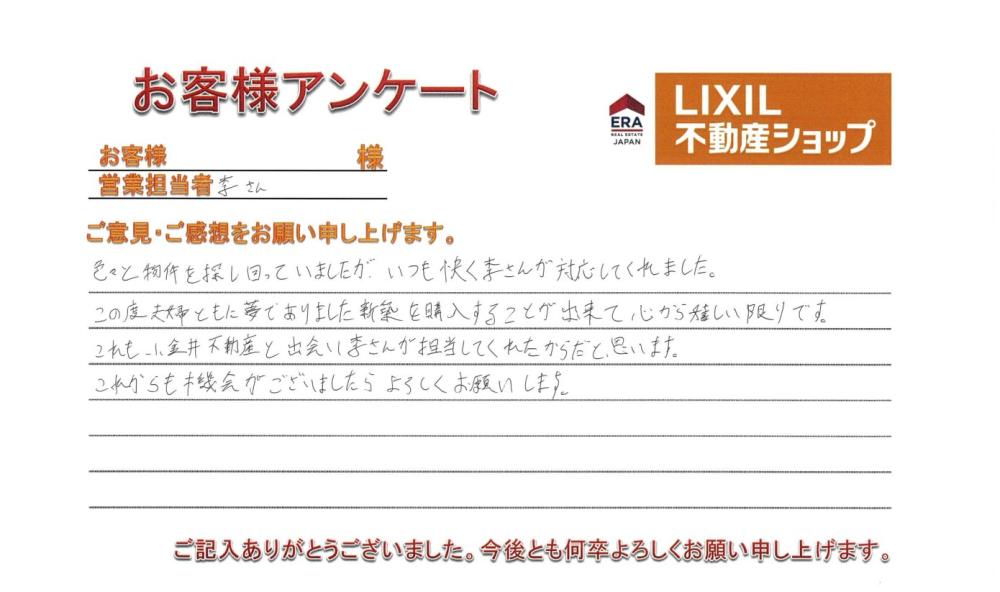 お客様アンケート
ERA
REAL ESTATE
JAPAN
LIXIL
不動産ショップ
お客様 様
営業担当者 李さん
ご意見・ご感想をお願い申し上げます。
色々と物件を探し回っていましたが、いつも快く李さんが対応してくれました。
この度夫婦ともに夢でありました新築を購入することが出来て、心から嬉しい限りです。
これも、小金井不動産と出会い李さんが担当してくれたからだと思います。
これからも機会がございましたらよろしくお願いします。
ご記入ありがとうございました。今後とも何卒よろしくお願い申し上げます。